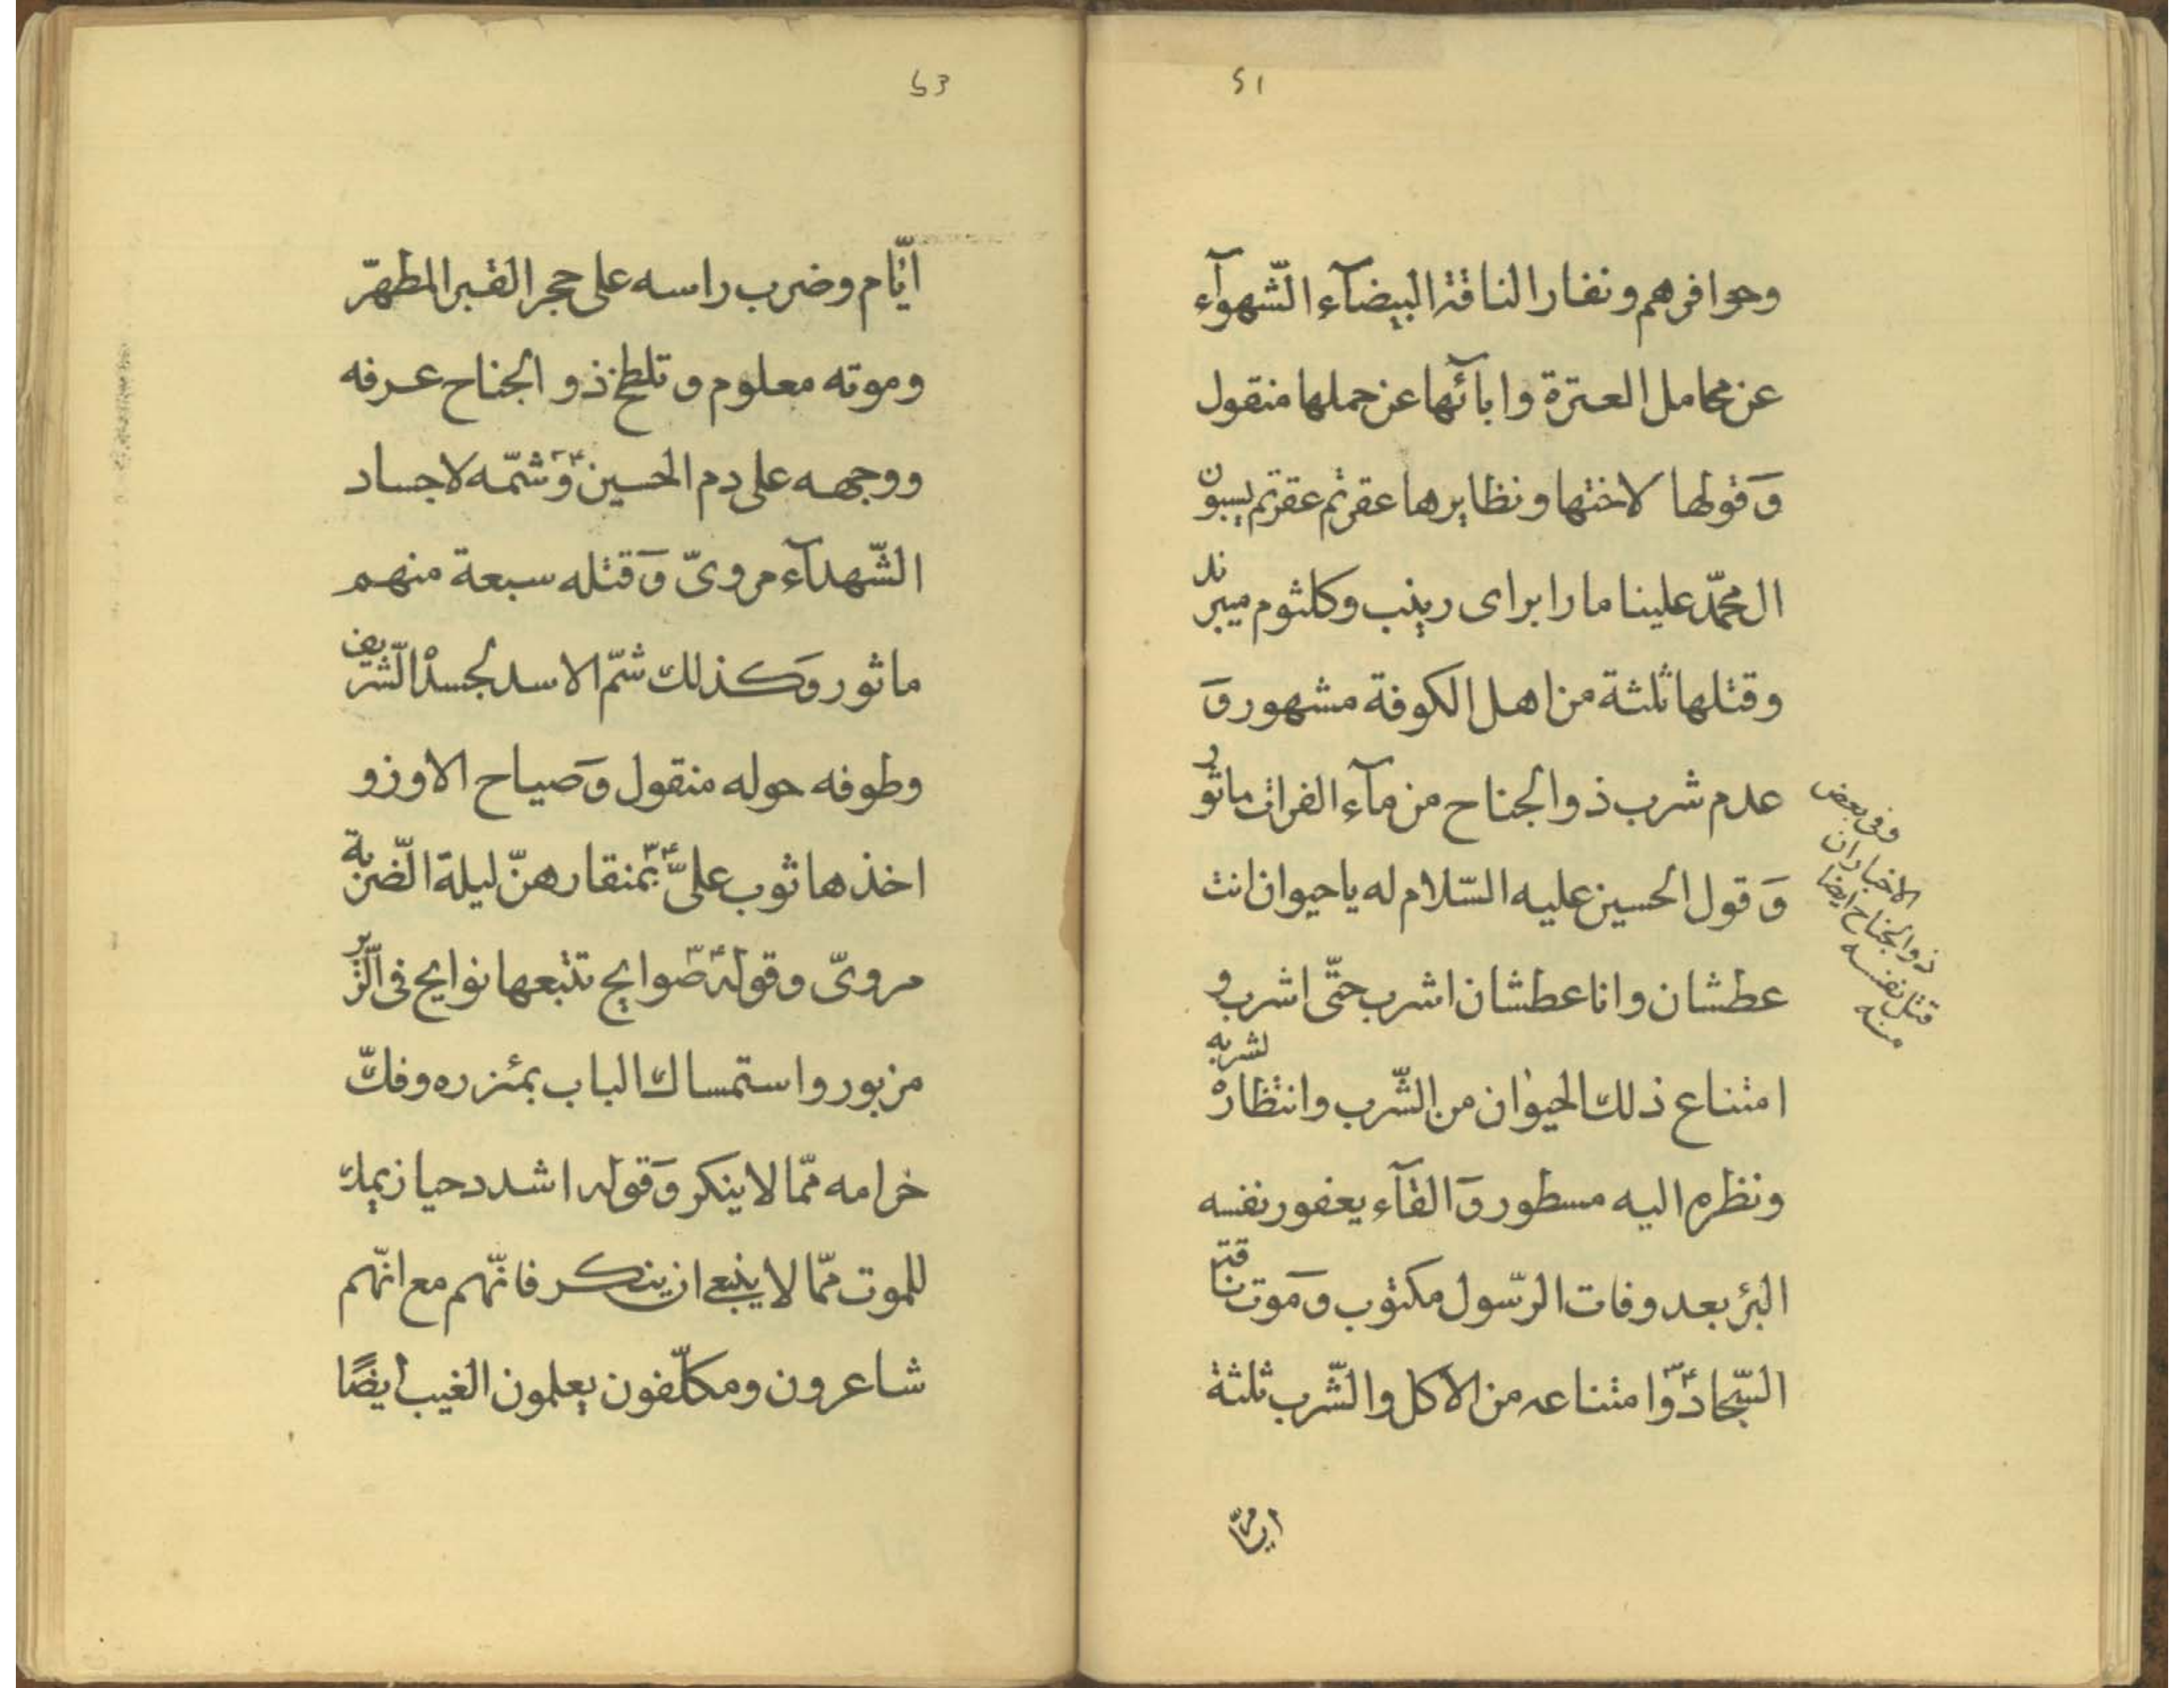 51
وحوافرهم ونفار الناقة البيضآء الشّهوآء
عن محامل العترة وابآئها عن حملها منقول
وَقولها لاختها ونظايرها عقرتم عقرتم يسبون
ال محمّد علينا ما را براى زينب وكلثوم ميبرند
وقتلها ثلثة من اهل الكوفة مشهور وَ
عدم شرب ذو الجناح من مآء الفرات ماثور
وَقول الحسين عليه السّلام له يا حيوان انت
عطشان وانا عطشان اشرب حتّى اشرب و
امتناع ذلك الحيوان من الشّرب وانتظاره لشربه
ونظره اليه مسطور وَالقآء يعفور نفسه
البئر بعد وفات الرّسول مكتوب وَموت ناقة
السّجادؑ وَامتناعه من الاكل والشّرب ثلثة
ايّام
وفى بعض
الاخبار ان
ذو الجناح ايضا
قتل نفسه
منه
53
ايّام وضرب راسه على حجر القبر المطهّر
وموته معلوم وتلطخ ذو الجناح عرفه
ووجهه على دم الحسينؑ وَشمّه لاجساد
الشّهدآء مروىّ وَقتله سبعة منهم
ماثور وَكذلك شمّ الاسد لجسد الشّريف
وطوفه حوله منقول وَصياح الاوز و
اخذها ثوب علىّؑ بمنقارهنّ ليلة الضّربة
مروىّ وقولهؑ صوايح تتبعها نوايح فى الزّبر
مزبور واستمساك الباب بمئزره وفكّ
خرامه ممّا لا ينكر وَقوله اشدد حيازيمك
للموت ممّا لا ينبغى ان ينكر فانّهم مع انّهم
شاعرون ومكلّفون يعلمون الغيب ايضًا